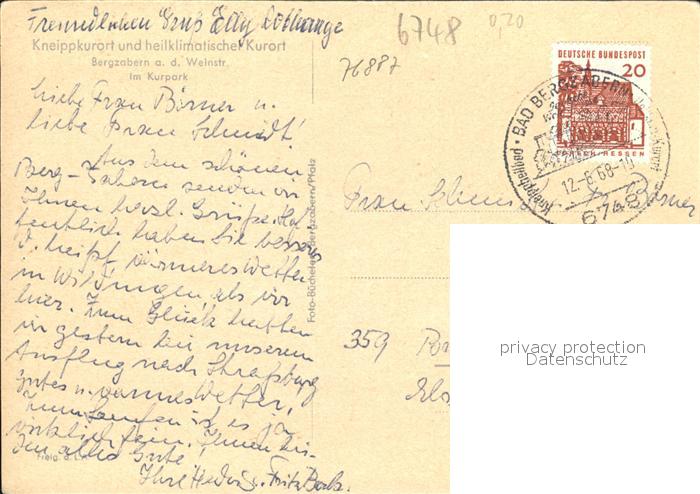 Freundlichen Gruß Elly
Kneippkurort und heilklimatischer Kurort
Bergzabern a. d. Weinstr.
Im Kurpark
6748
0,20
76887
Liebe Frau Börner u.
liebe Frau Schmidt!
Aus dem schönen
Berg-Zabern senden wir
Ihnen herzl. Grüße. Hof
fentlich haben Sie besseres
d. heißt wärmeres Wetter
in Wildungen, als wir
hier. Zum Glück hatten
wir gestern bei unserem
Ausflug nach Straßburg
gutes u. warmes Wetter,
zum Laufen ist es ja
wirklich fein. Ihnen bei-
den alles Gute!
Ihre Hedwig u. Fritz
Freig. d. L.
Foto-Bücheler, Bergzabern/Pfalz
DEUTSCHE BUNDESPOST
20
HESSEN
BAD BERGZABERN
Kneippheilbad
Kurort
12.-6.68-10
6748
Frau Börner
359
privacy protection
Datenschutz